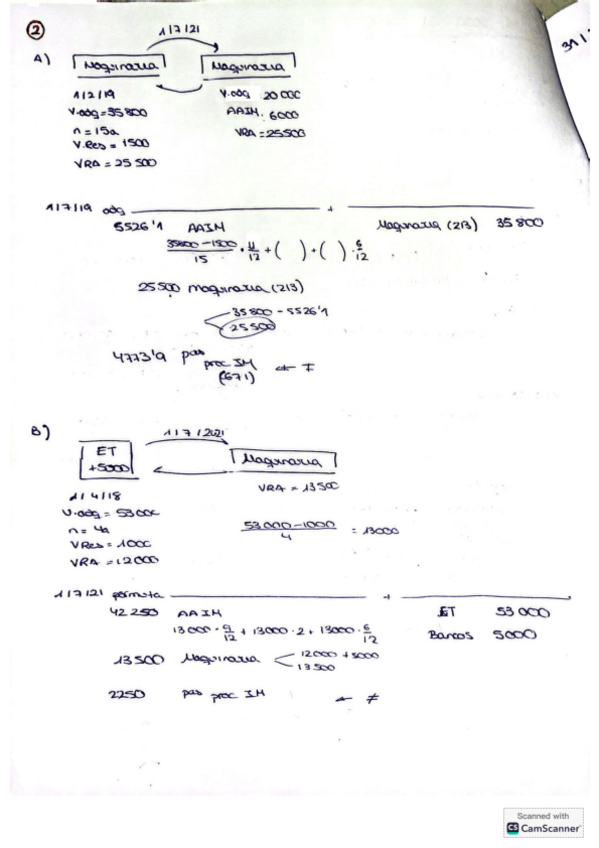 ②
31/
1/7/21
A)
Maquinaria Maquinaria
1/2/19
V.adq=35800
n = 15a
V.Res = 1500
VRA = 25500
V.adq 20 000
AAIM. 6000
VRA = 25500
1/7/19 adq +
5526'1 AAIM Maquinaria (213) 35 800
35800-1500/15 · 11/12 + ( ) + ( ) · 6/12
25500 Maquinaria (213)
35 800 - 5526'1
25500
4773'9 pas proc IM (671) ← ≠
B)
1/7/2021
ET +5000
Maquinaria
VRA = 13500
1/4/18
V.adq = 53000
n = 4a
VRes = 1000
VRA = 12000
53000-1000/4 = 13000
1/7/21 permuta +
42 250 AAIM ET 53 000
13000 · 9/12 + 13000 · 2 + 13000 · 6/12 Bancos 5000
13500 Maquinaria 12000 + 5000
13 500
2250 pas proc IM ← ≠
Scanned with
CS CamScanner